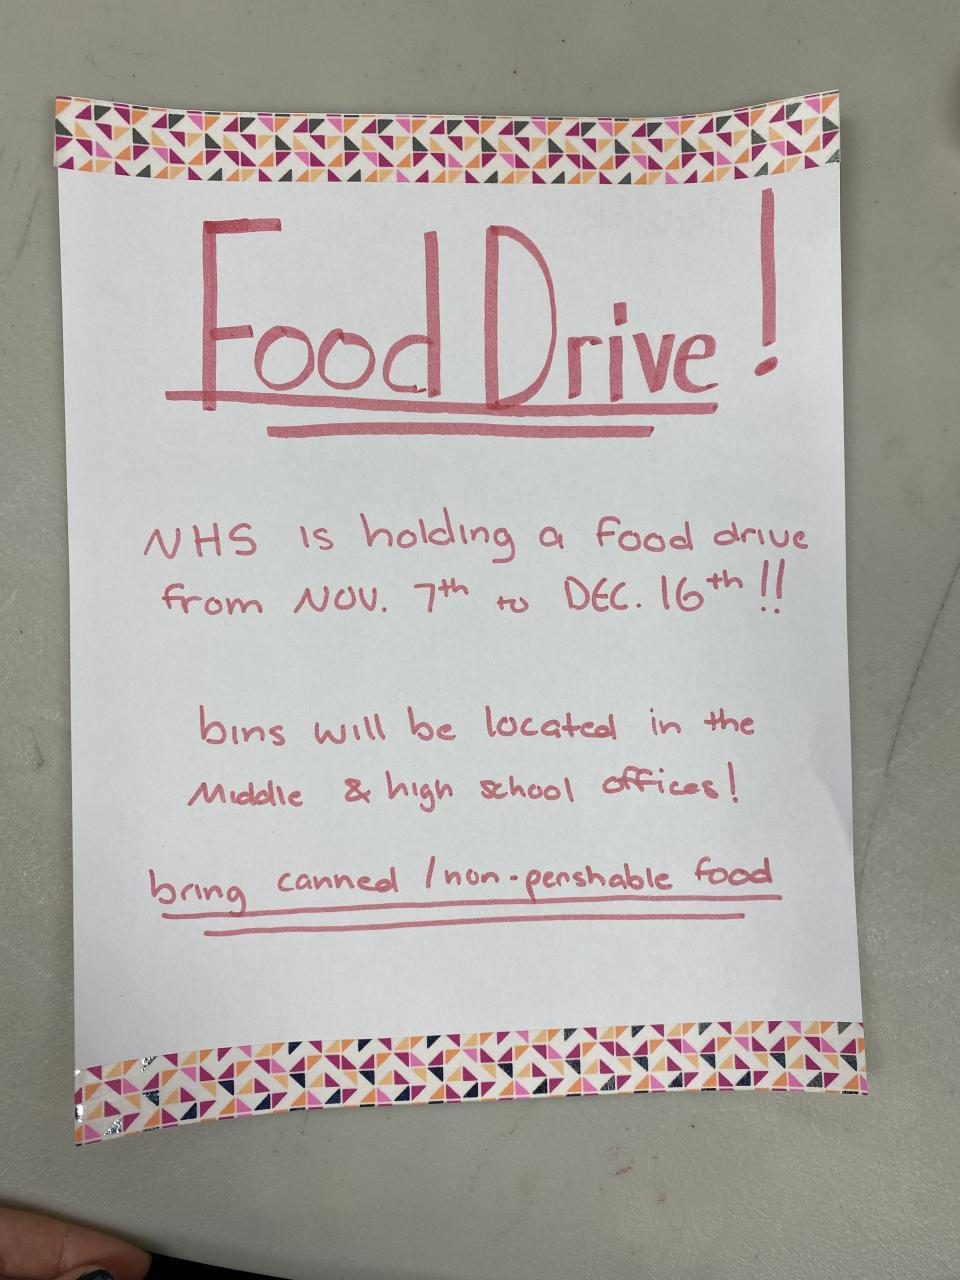 Food Drive!
NHS is holding a food drive
from NOV. 7th to DEC. 16th!!
bins will be located in the
Middle & high school offices!
bring canned /non-pershable food